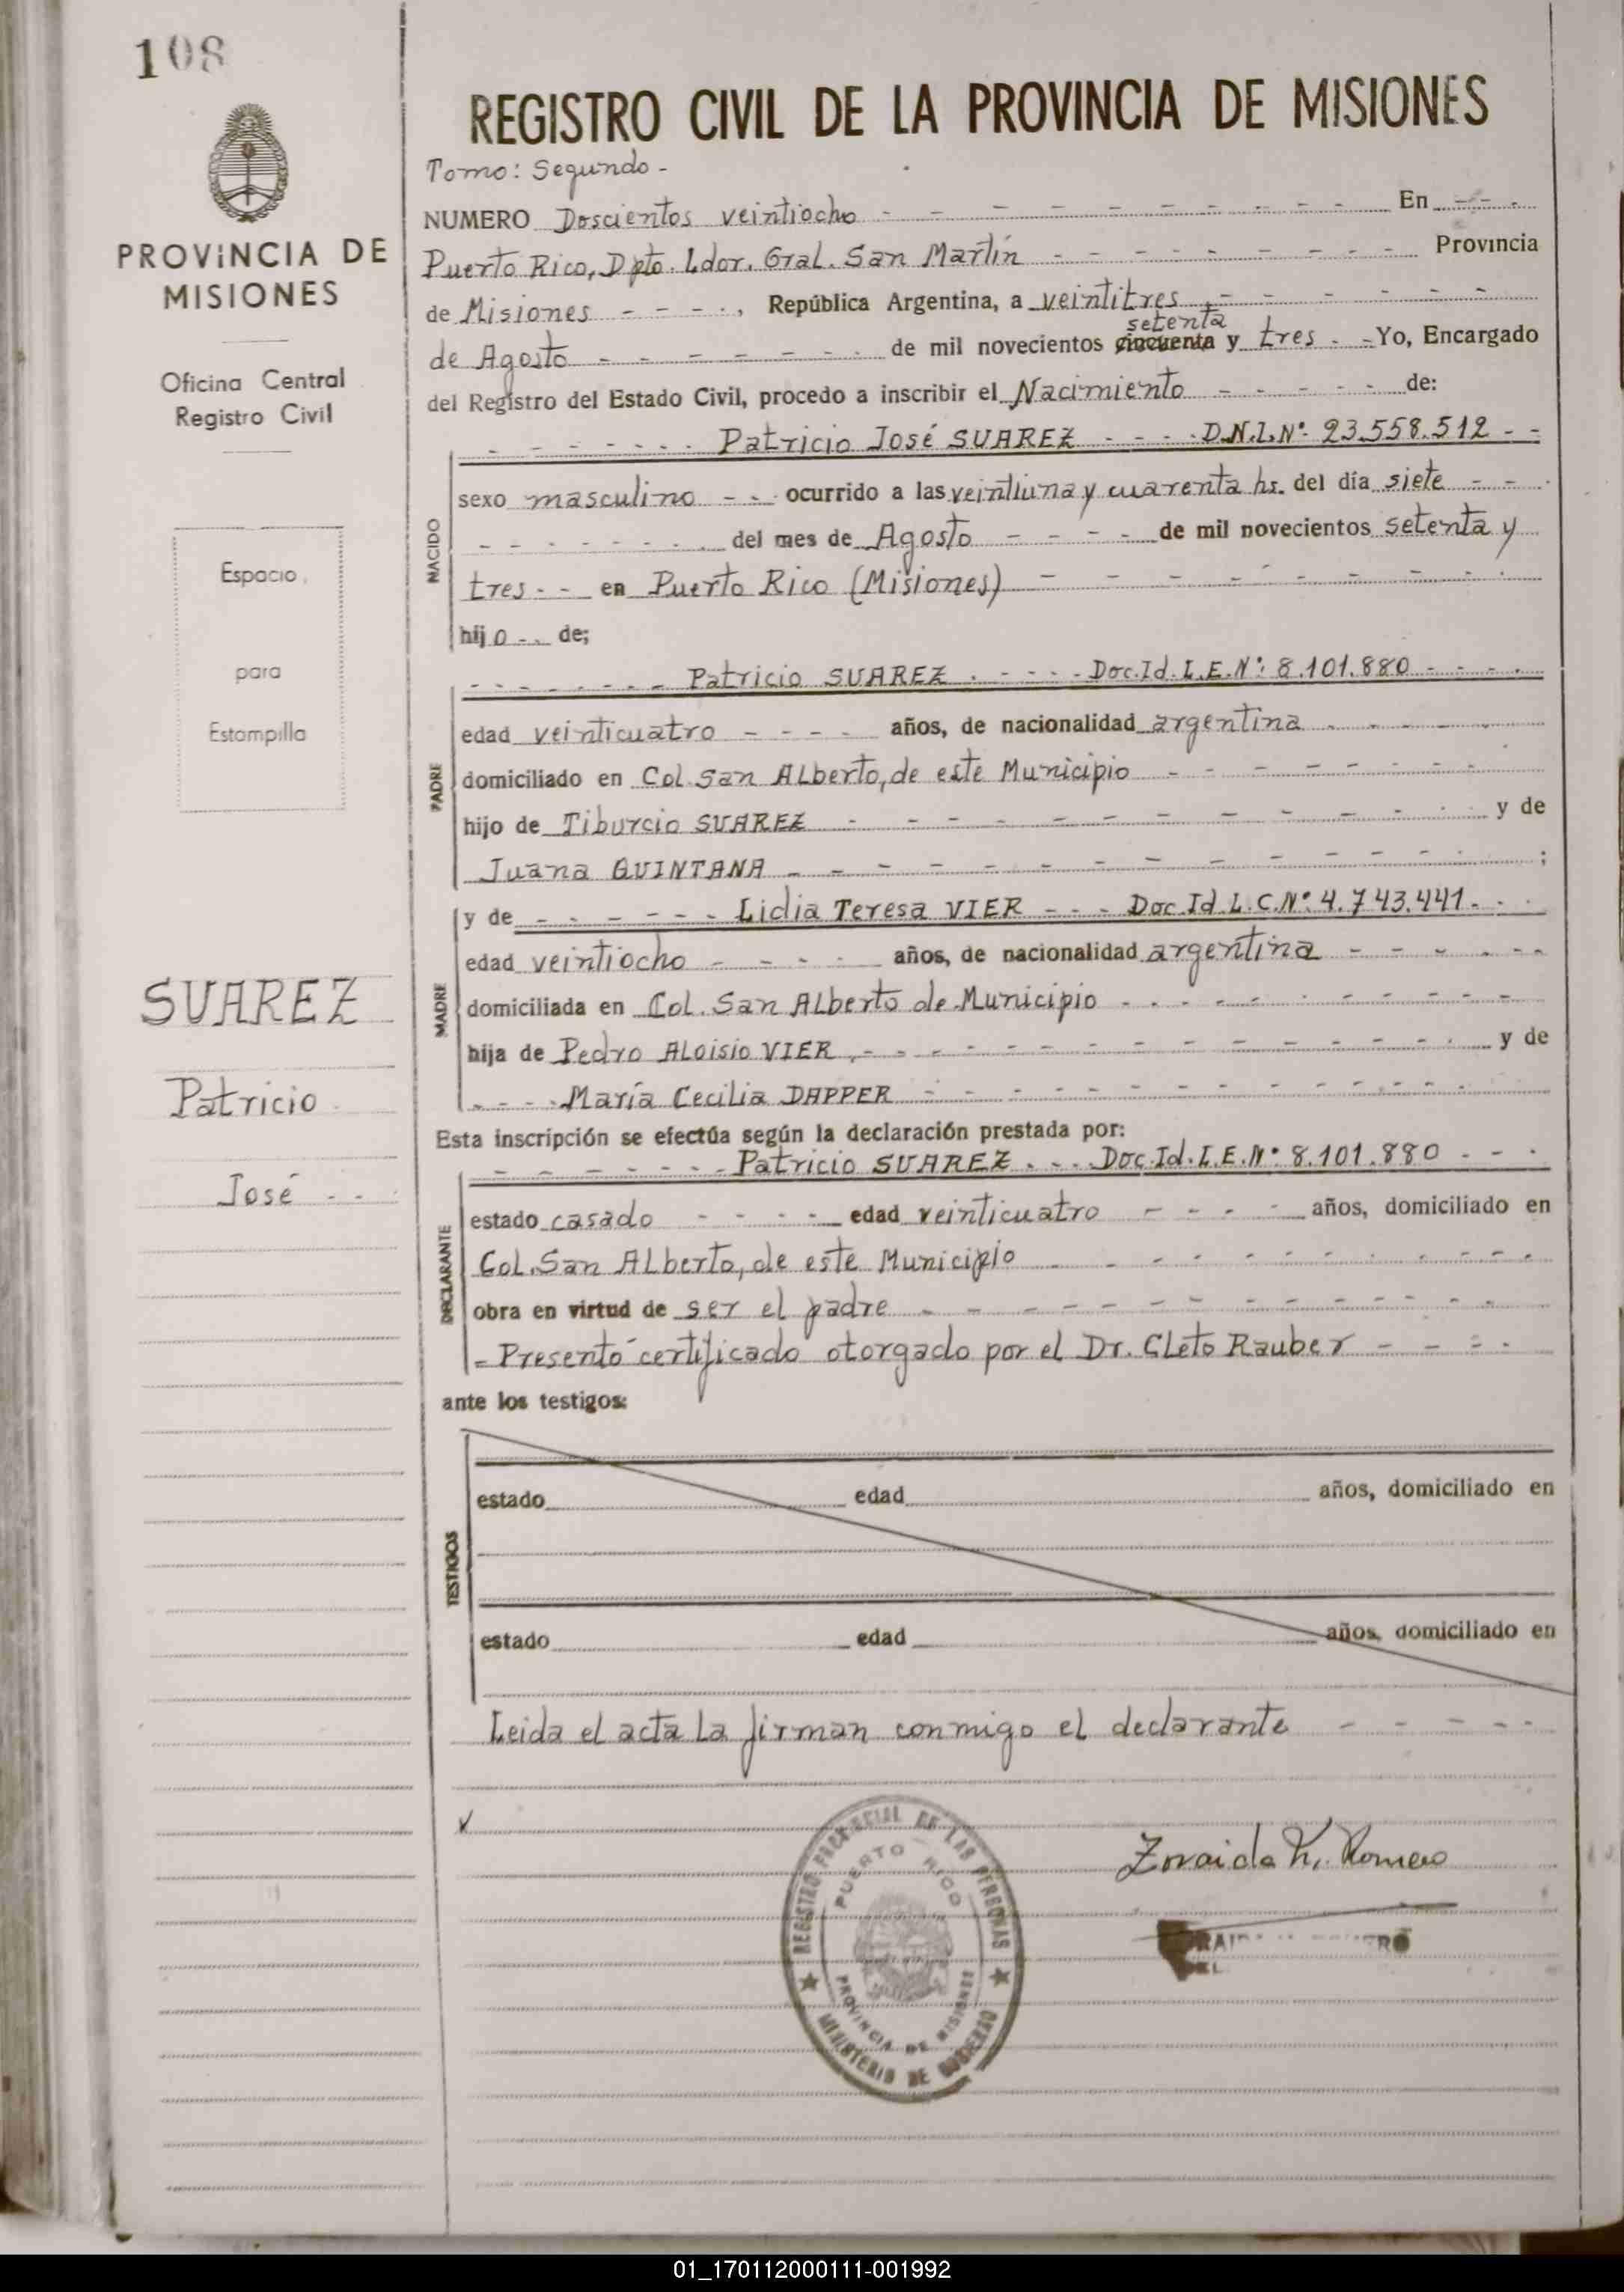 108
REGISTRO CIVIL DE LA PROVINCIA DE MISIONES
Tomo: Segundo -
PROVINCIA DE
MISIONES
Oficina Central
Registro Civil
Espacio
para
Estampilla
SUAREZ
Patricio
José - -
NUMERO Doscientos veintiocho - - - - - - - - - En - - -
Puerto Rico, Dpto. Ldor. Gral. San Martín - - - - - - - - - Provincia
de Misiones - - - -, República Argentina, a veintitres - - - - -
setenta
de Agosto - - - - - - - de mil novecientos cincuenta y tres - - Yo, Encargado
del Registro del Estado Civil, procedo a inscribir el Nacimiento - - - - - de:
- - - - - - Patricio José SUAREZ - - - - D.N.I.Nº 23.558.512 - -
NACIDO
sexo masculino - - - ocurrido a las veintiuna y cuarenta hs. del día siete - - -
- - - - - - - del mes de Agosto - - - - de mil novecientos setenta y
tres - - en Puerto Rico (Misiones) - - - - - - - - -
hijo - - de;
PADRE
- - - - - - - Patricio SUAREZ - - - - - Doc.Id.L.E.Nº: 8.101.880 - - - -
edad veinticuatro - - - - años, de nacionalidad argentina - - - - -
domiciliado en Col. San Alberto, de este Municipio - - - - - - - -
hijo de Tiburcio SUAREZ - - - - - - - - - - - y de
Juana QUINTANA - - - - - - - - - - - - - ;
MADRE
y de - - - - - - Lidia Teresa VIER - - - Doc.Id.L.C.Nº: 4.743.441 - - -
edad veintiocho - - - - años, de nacionalidad argentina - - - - - -
domiciliada en Col. San Alberto de Municipio - - - - - - - - - -
hija de Pedro Aloisio VIER - - - - - - - - - - - - y de
- - - - María Cecilia DAPPER - - - - - - - - - - - -
Esta inscripción se efectúa según la declaración prestada por:
DECLARANTE
- - - - - - - Patricio SUAREZ - - - Doc.Id.L.E.Nº 8.101.880 - - -
estado casado - - - - - edad veinticuatro - - - - años, domiciliado en
Col. San Alberto, de este Municipio - - - - - - - - - -
obra en virtud de ser el padre - - - - - - - - - - - -
- Presentó certificado otorgado por el Dr. Cleto Rauber - - - -
ante los testigos:
TESTIGOS
estado edad años, domiciliado en
estado edad años, domiciliado en
Leida el acta la firman conmigo el declarante - - - - -
REGISTRO PROVINCIAL DE LAS PERSONAS
PUERTO RICO
PROVINCIA DE MISIONES
MINISTERIO DE GOBIERNO
Zoraida K. Romero
01_170112000111-001992